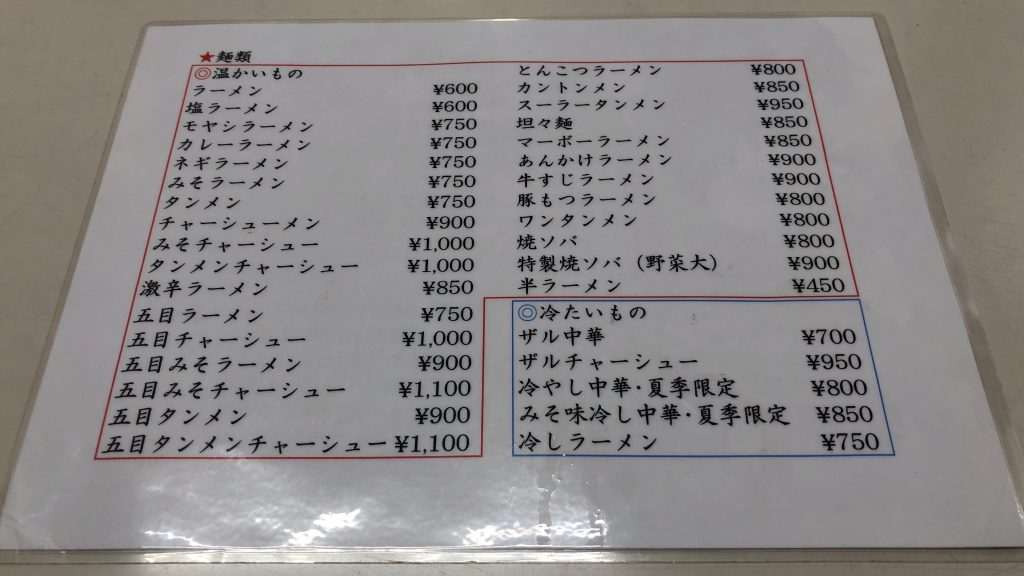 ★麺類
◎温かいもの
ラーメン ¥600
塩ラーメン ¥600
モヤシラーメン ¥750
カレーラーメン ¥750
ネギラーメン ¥750
みそラーメン ¥750
タンメン ¥750
チャーシューメン ¥900
みそチャーシュー ¥1,000
タンメンチャーシュー ¥1,000
激辛ラーメン ¥850
五目ラーメン ¥750
五目チャーシュー ¥1,000
五目みそラーメン ¥900
五目みそチャーシュー ¥1,100
五目タンメン ¥900
五目タンメンチャーシュー ¥1,100
とんこつラーメン ¥800
カントンメン ¥850
スーラータンメン ¥950
坦々麺 ¥850
マーボーラーメン ¥850
あんかけラーメン ¥900
牛すじラーメン ¥900
豚もつラーメン ¥800
ワンタンメン ¥800
焼ソバ ¥800
特製焼ソバ（野菜大） ¥900
半ラーメン ¥450
◎冷たいもの
ザル中華 ¥700
ザルチャーシュー ¥950
冷やし中華・夏季限定 ¥800
みそ味冷し中華・夏季限定 ¥850
冷しラーメン ¥750